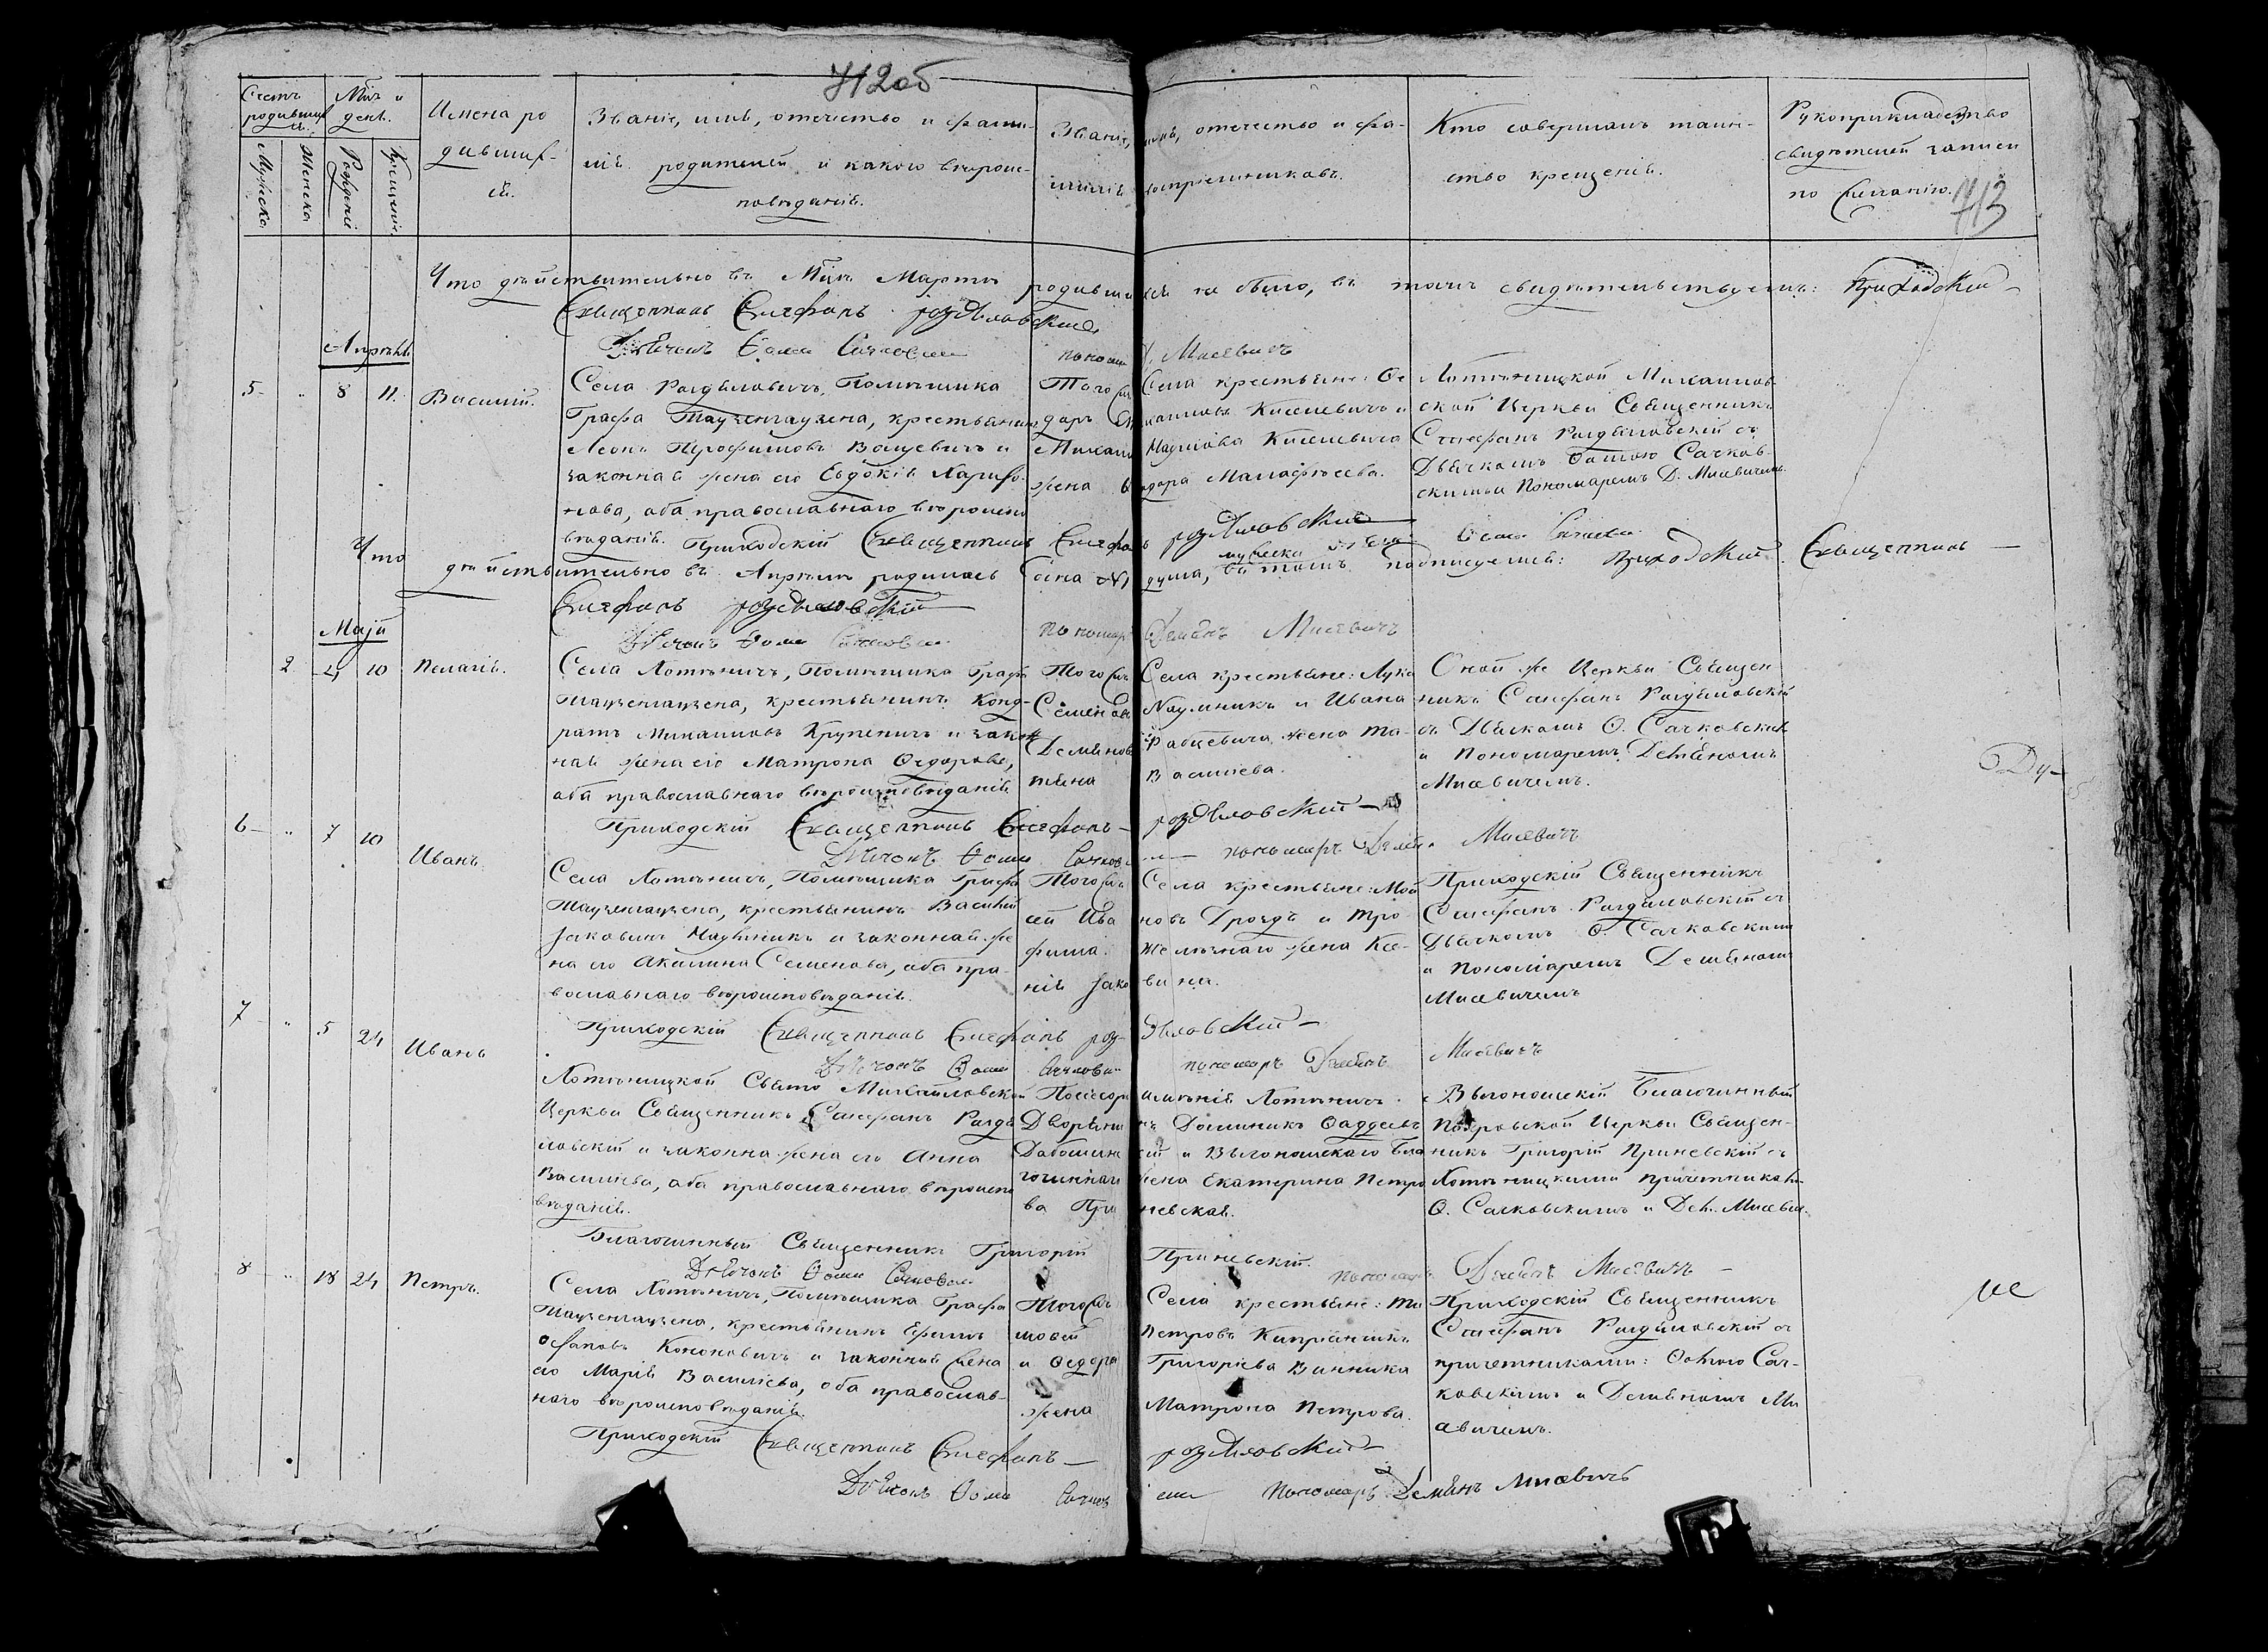 712об
Счетъ родившихся.
Мцъ и день.
Имена родившихся.
Званіе, имя, отечество и фамилія родителей и какого вѣроисповѣданія.
Званіе, имя, отечество и фамилія воспріемниковъ.
Кто совершалъ таинство крещенія.
Рукоприкладство свидѣтелей записи по желанію.
713
Мужеска
Женска
Рожденіе
Крещеніе
Что дѣйствительно въ Мцѣ Мартѣ родившихся не было, въ томъ свидѣтельствуемъ: Приходскій
Священникъ Стефанъ Роздяловскій
Дьячокъ Фома Сачковскій пономарь Д. Мисевичъ
Апрѣль
5 " 8 11. Василій.
Села
Помѣщика
Графа Тызенгаузена, крестьянинъ
Леонъ Трофимовъ и
законная жена его Евдокія
нова, оба православнаго вѣроиспо
вѣданія.
Того же Села крестьяне: Ѳе
доръ
жена
Малафѣева.
Хотѣницкой Михаилов
ской Церкви Священникъ
Стефанъ Раздяловскій съ
Дьячкомъ Фомою Сачков
скимъ и Пономаремъ Д. Мисевичемъ.
Приходскій Священникъ Стефанъ Роздяловскій
Что дѣйствительно въ Апрѣлѣ родилась одна мужеска пола душа, въ томъ подписуемся: Приходскій Священникъ
Стефанъ Роздяловскій
Дьячокъ Фома Сачковскій пономарь Демянъ Мисевичъ
Маій
2 4 10 Пелагія.
Села Хотѣничъ, Помѣщика Графа
Тызенгаузена, крестьянинъ Конд-
ратъ Михаиловъ Крупеничъ и закон
ная жена его Матрона Ѳедорова,
оба православнаго вѣроисповѣданія
Того же Села крестьяне: Лука
Семеновъ Наумникъ и Ивана
Демянова жена Та-
тяна Василіева.
Оной же Церкви Священ
никъ Стефанъ Раздяловскій
съ Дьячкомъ Ѳ. Сачковскимъ
и Пономаремъ Демяномъ
Мисевичемъ.
Ду-
Приходскій Священникъ Стефанъ Роздяловскій
Дьячокъ Фома Сачковскій пономарь Демянъ Мисевичъ
6 " 7 10 Иванъ.
Села Хотѣничъ, Помѣщика Графа
Тызенгаузена, крестьянинъ Василій
Яковинъ Наумникъ и законная же
на его Акилина Семенова, оба пра
вославнаго вѣроисповѣданія.
Того же Села крестьяне: Мои
сей Ивановъ Дроздъ и Тро
фима жена Ксе-
нія Яковина.
Приходскій Священникъ
Стефанъ Раздяловскій съ
Дьячкомъ Ѳ. Сачковскимъ
и Пономаремъ Демяномъ
Мисевичемъ
Приходскій Священникъ Стефанъ Роздяловскій
Дьячокъ Фома Сачковскій пономарь Демянъ Мисевичъ
7 " 5 24 Иванъ
Хотѣницкой Свято Михайловской
Церкви Священникъ Стефанъ Раздя
ловскій и законна жена его Анна
Василіева, оба православнаго вѣроиспо
вѣданія.
Посессоръ имѣнія Хотѣничъ
Дворянинъ Доминикъ Ѳаддеевъ
и Выгонощскаго Бла
гочиннаго жена Екатерина Петро
ва Приневская.
Выгонощскій Благочинный
Покровской Церкви Священ-
никъ Григорій Приневскій съ
Хотѣницкими причетниками
Ѳ. Сачковскимъ и Дем. Мисевич.
Благочинный Священникъ Григорій Приневскій.
Дьячокъ Фома Сачковскій пономарь Демянъ Мисевичъ
8 " 18 24 Петръ.
Села Хотѣничъ, Помѣщика Графа
Тызенгаузена, крестьянинъ Ефимъ
Кононовичъ и законная жена
его Марія Василіева, оба православ-
наго вѣроисповѣданія.
Того же Села крестьяне: Ти
мофей Петровъ Кипріянчикъ
и Ѳедора Григоріева Винника
жена Матрона Петрова.
Приходскій Священникъ
Стефанъ Раздяловскій съ
причетниками: Ѳомою Сач-
ковскимъ и Демяномъ Ми
севичемъ.
Приходскій Священникъ Стефанъ Роздяловскій
Дьячокъ Фома Сачковскій Пономарь Демянъ Мисевичъ